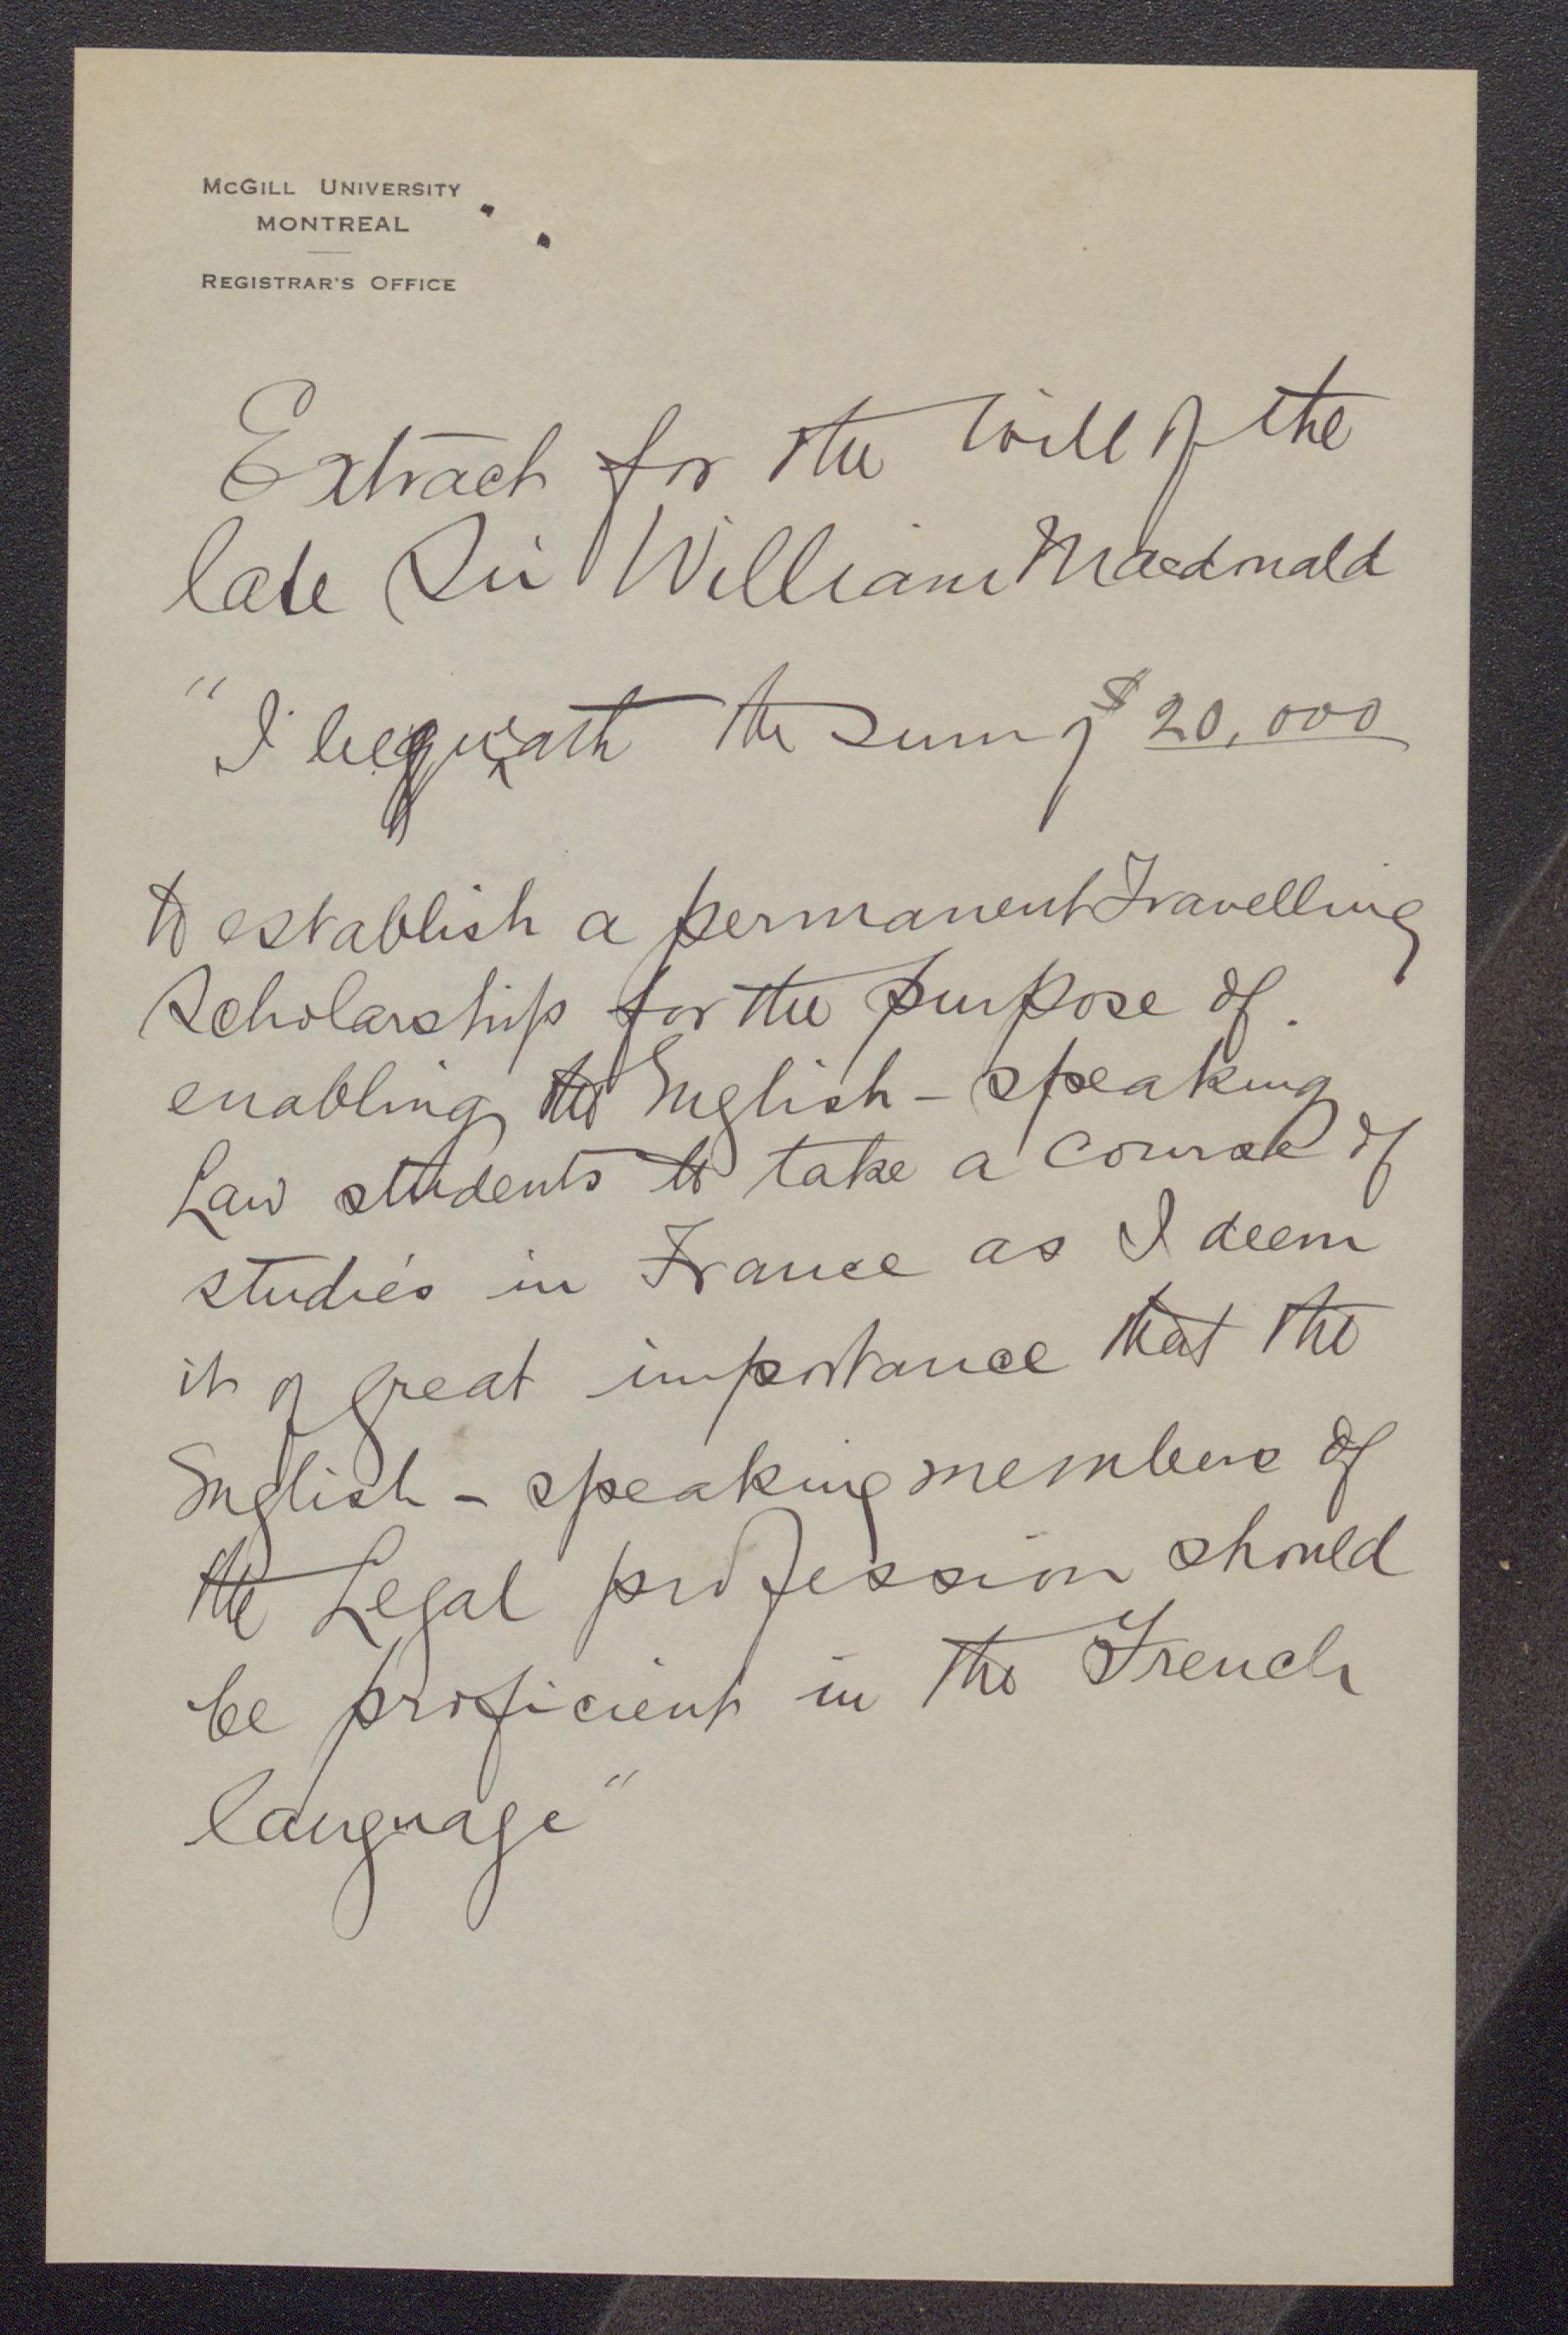 McGill University
MONTREAL
Registrar's Office
Extract for the will of the
late Sir William Macdonald
"I bequeath the sum of $20,000
to establish a permanent Travelling
Scholarship for the purpose of
enabling the English-speaking
Law students to take a course of
studies in France as I deem
it of great importance that the
English-speaking members of
the Legal profession should
be proficient in the French
language"